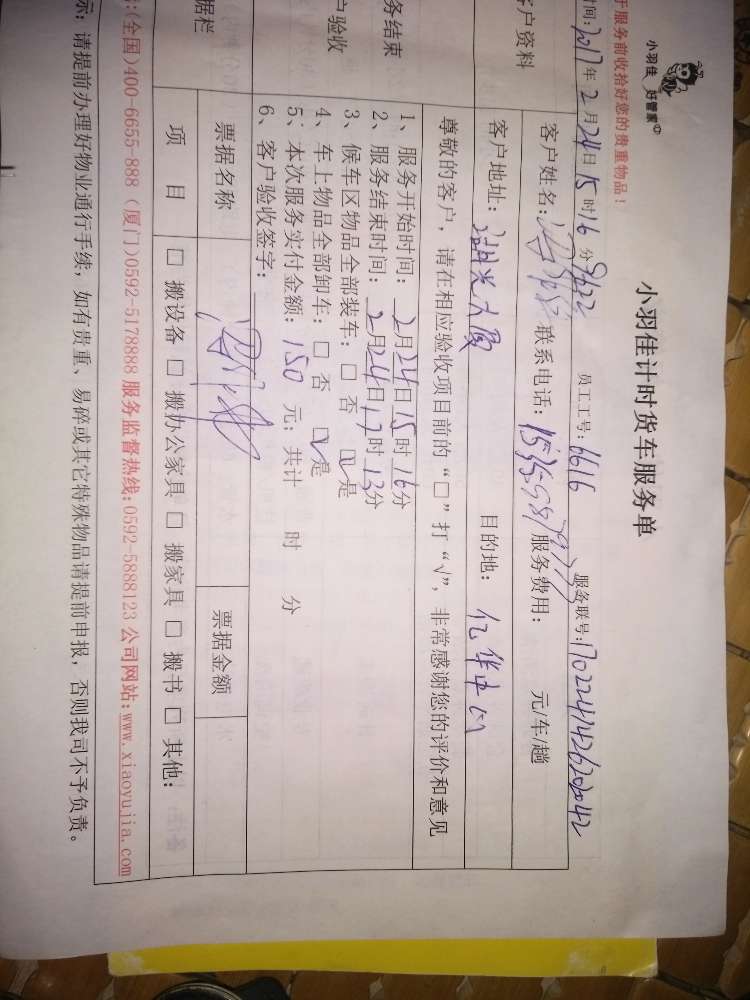 小羽佳 好管家
小羽佳计时货车服务单
于服务前收拾好您的贵重物品！
时间：2017年2月24日15时16分
员工工号：6616
服务联号：170224142620042
客户资料
客户姓名：
联系电话：
服务费用： 元/车/趟
客户地址：湖光大厦
目的地：亿华中心
尊敬的客户，请在相应验收项目前的“□”打“√”，非常感谢您的评价和意见
务结束
户验收
1、服务开始时间：2月24日15时16分
2、服务结束时间：2月24日17时13分
3、候车区物品全部装车：□ 否 ☑是
4、车上物品全部卸车：□ 否 ☑是
5、本次服务实付金额：150 元；共计 时 分
6、客户验收签字：
据栏
票据名称
票据金额
项 目
□ 搬设备 □ 搬办公家具 □ 搬家具 □ 搬书 □ 其他：
:(全国)400-6655-888 (厦门)0592-5178888 服务监督热线:0592-5888123 公司网站:www.xiaoyujia.com
示：请提前办理好物业通行手续，如有贵重、易碎或其它特殊物品请提前申报，否则我司不予负责。